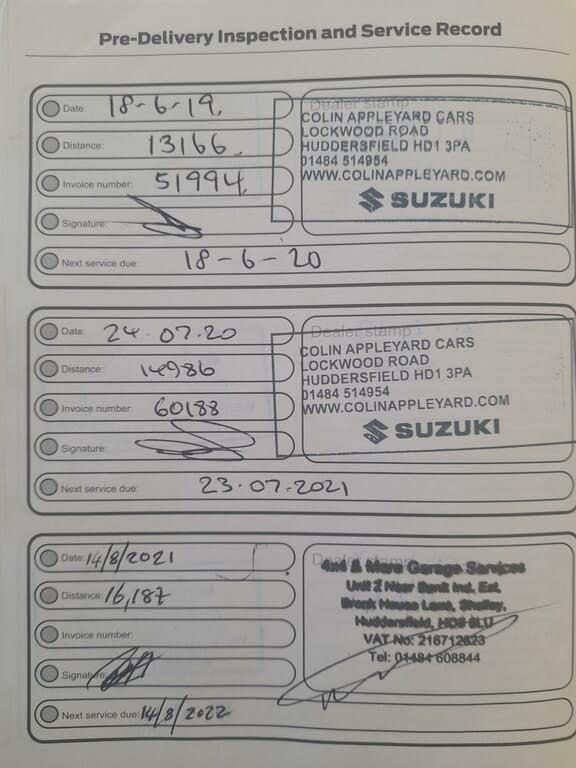 Pre-Delivery Inspection and Service Record
Date: 18-6-19.
Distance: 13166.
Invoice number: 51994.
Signature:
Next service due: 18-6-20
Dealer stamp
COLIN APPLEYARD CARS
LOCKWOOD ROAD
HUDDERSFIELD HD1 3PA
01484 514954
WWW.COLINAPPLEYARD.COM
SUZUKI
Date: 24-07-20
Distance: 14986
Invoice number: 60188
Signature:
Next service due: 23-07-2021
Dealer stamp
COLIN APPLEYARD CARS
LOCKWOOD ROAD
HUDDERSFIELD HD1 3PA
01484 514954
WWW.COLINAPPLEYARD.COM
SUZUKI
Date: 14/8/2021
Distance: 16,187
Invoice number:
Signature:
Next service due: 14/8/2022
Dealer stamp
4x4 & More Garage Services
Unit 2 Near Bank Ind. Est.
House Lane, Shelley,
Huddersfield, HD8 8LU
VAT No: 216712823
Tel: 01484 608844